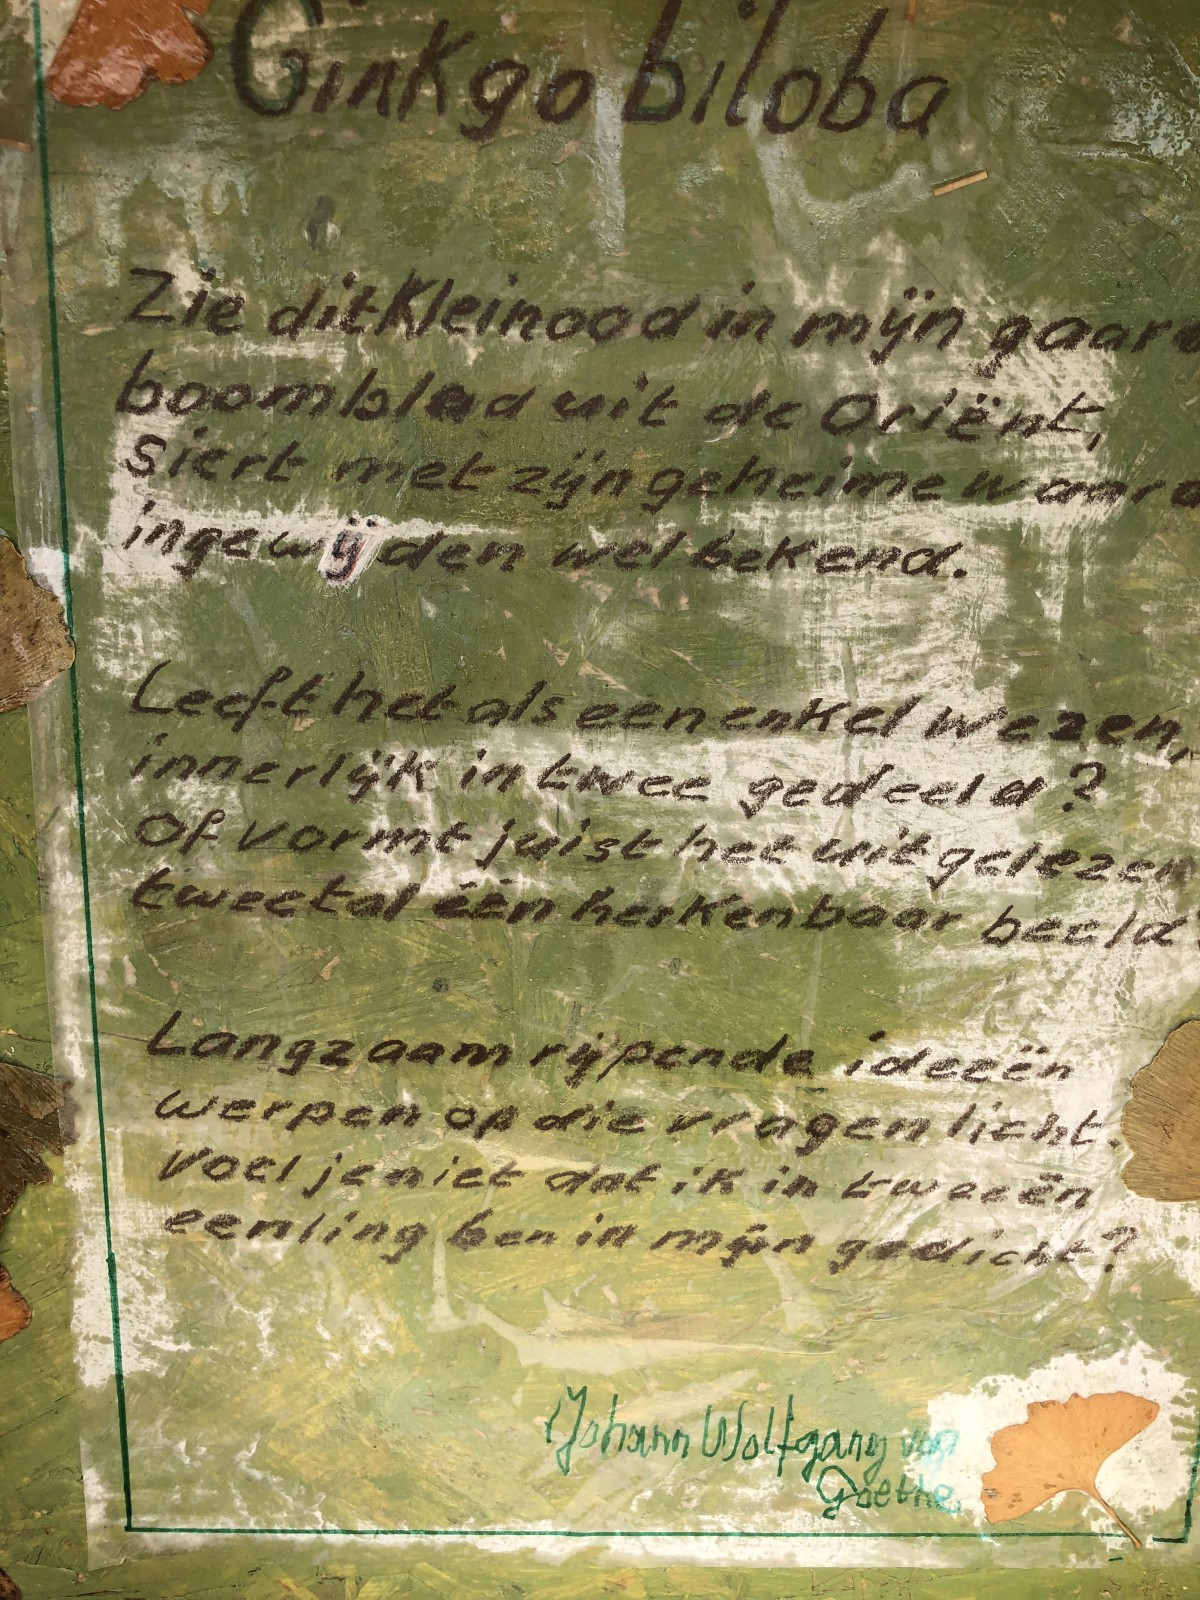 Ginkgo biloba
Zie dit kleinood in mijn gaard
boomblad uit de Oriënt,
Siert met zijn geheime waard
ingewijden wel bekend.
Leeft het als een enkel wezen,
innerlijk in twee gedeeld?
Of vormt juist het uitgelezen
tweetal één herkenbaar beeld
Langzaam rijpende ideeën
werpen op die vragen licht.
Voel je niet dat ik in tweeën
eenling ben in mijn gedicht?
(Johann Wolfgang von
Goethe